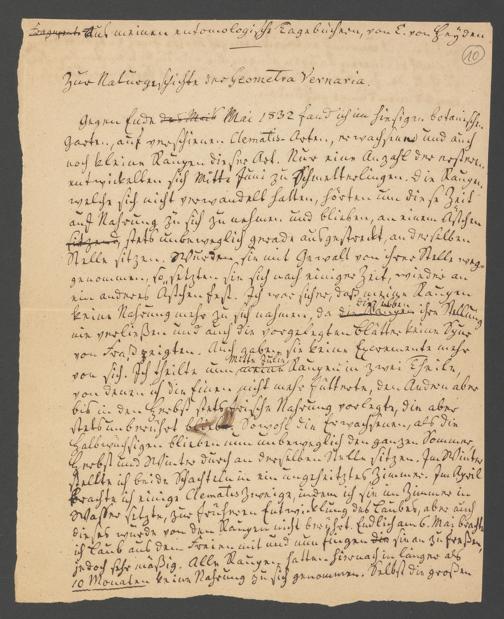 Fragmente Aus meinen entomologische Tagebüchern, von C. von Heyden
10
Zur Naturgeschichte der Geometra Vernaria.
Gegen Ende des Mais Mai 1832 fand ich im hiesigen botanischen
Garten, auf verschienen Clematis-Arten, erwachsene und auch
noch kleine Raupen dieser Art. Nur eine Anzahl der ersteren
entwickelten sich Mitte Juni zu Schmetterlingen. Die Raupen,
welche sich nicht verwandelt hatten, hörten um diese Zeit
auf Nahrung zu sich zu nehmen und blieben, an einem Ästchen
sitzend, stets unbeweglich gerade ausgestreckt, an derselben
Stelle sitzen. Wurden sie mit Gewalt von ihrer Stelle weg-
genommen, so setzten sie sich nach einiger Zeit, wieder an
ein anderes Ästchen fest. Ich war sicher, daß meine Raupen
keine Nahrung mehr zu sich nahmen, da dieselben die Raupen ihre Stellung
nie verließen und auch die vorgelegten Blätter keine Spur
von Fraß zeigten. Auch gaben sie keine Excremente mehr
von sich. Ich theilte nun Mitte Juli meine Raupen in zwei Theile,
von denen ich die Einen nicht mehr fütterte, den Andern aber
bis in den Herbst stets frische Nahrung vorlegte, die aber
stets unberührt blieb. Sowohl die Erwachsenen, als die
Halbwüchsigen blieben nun unbeweglich den ganzen Sommer,
Herbst und Winter durch an derselben Stelle sitzen. Im Winter
stellte ich beide Schachteln in ein ungeheitztes Zimmer. Im April
brachte ich einige Clematis Zweige, indem ich sie im Zimmer in
Wasser setzte, zur früheren Entwicklung des Laubes, aber auch
dieses wurde von den Raupen nicht berührt. Endlich am 6. Mai brachte
ich Laub aus dem Freien mit und nun fingen die sie an zu fressen,
jedoch sehr mäßig. Alle Raupen hatten hiernach in länger als
10 Monaten keine Nahrung zu sich genommen. Selbst die großen